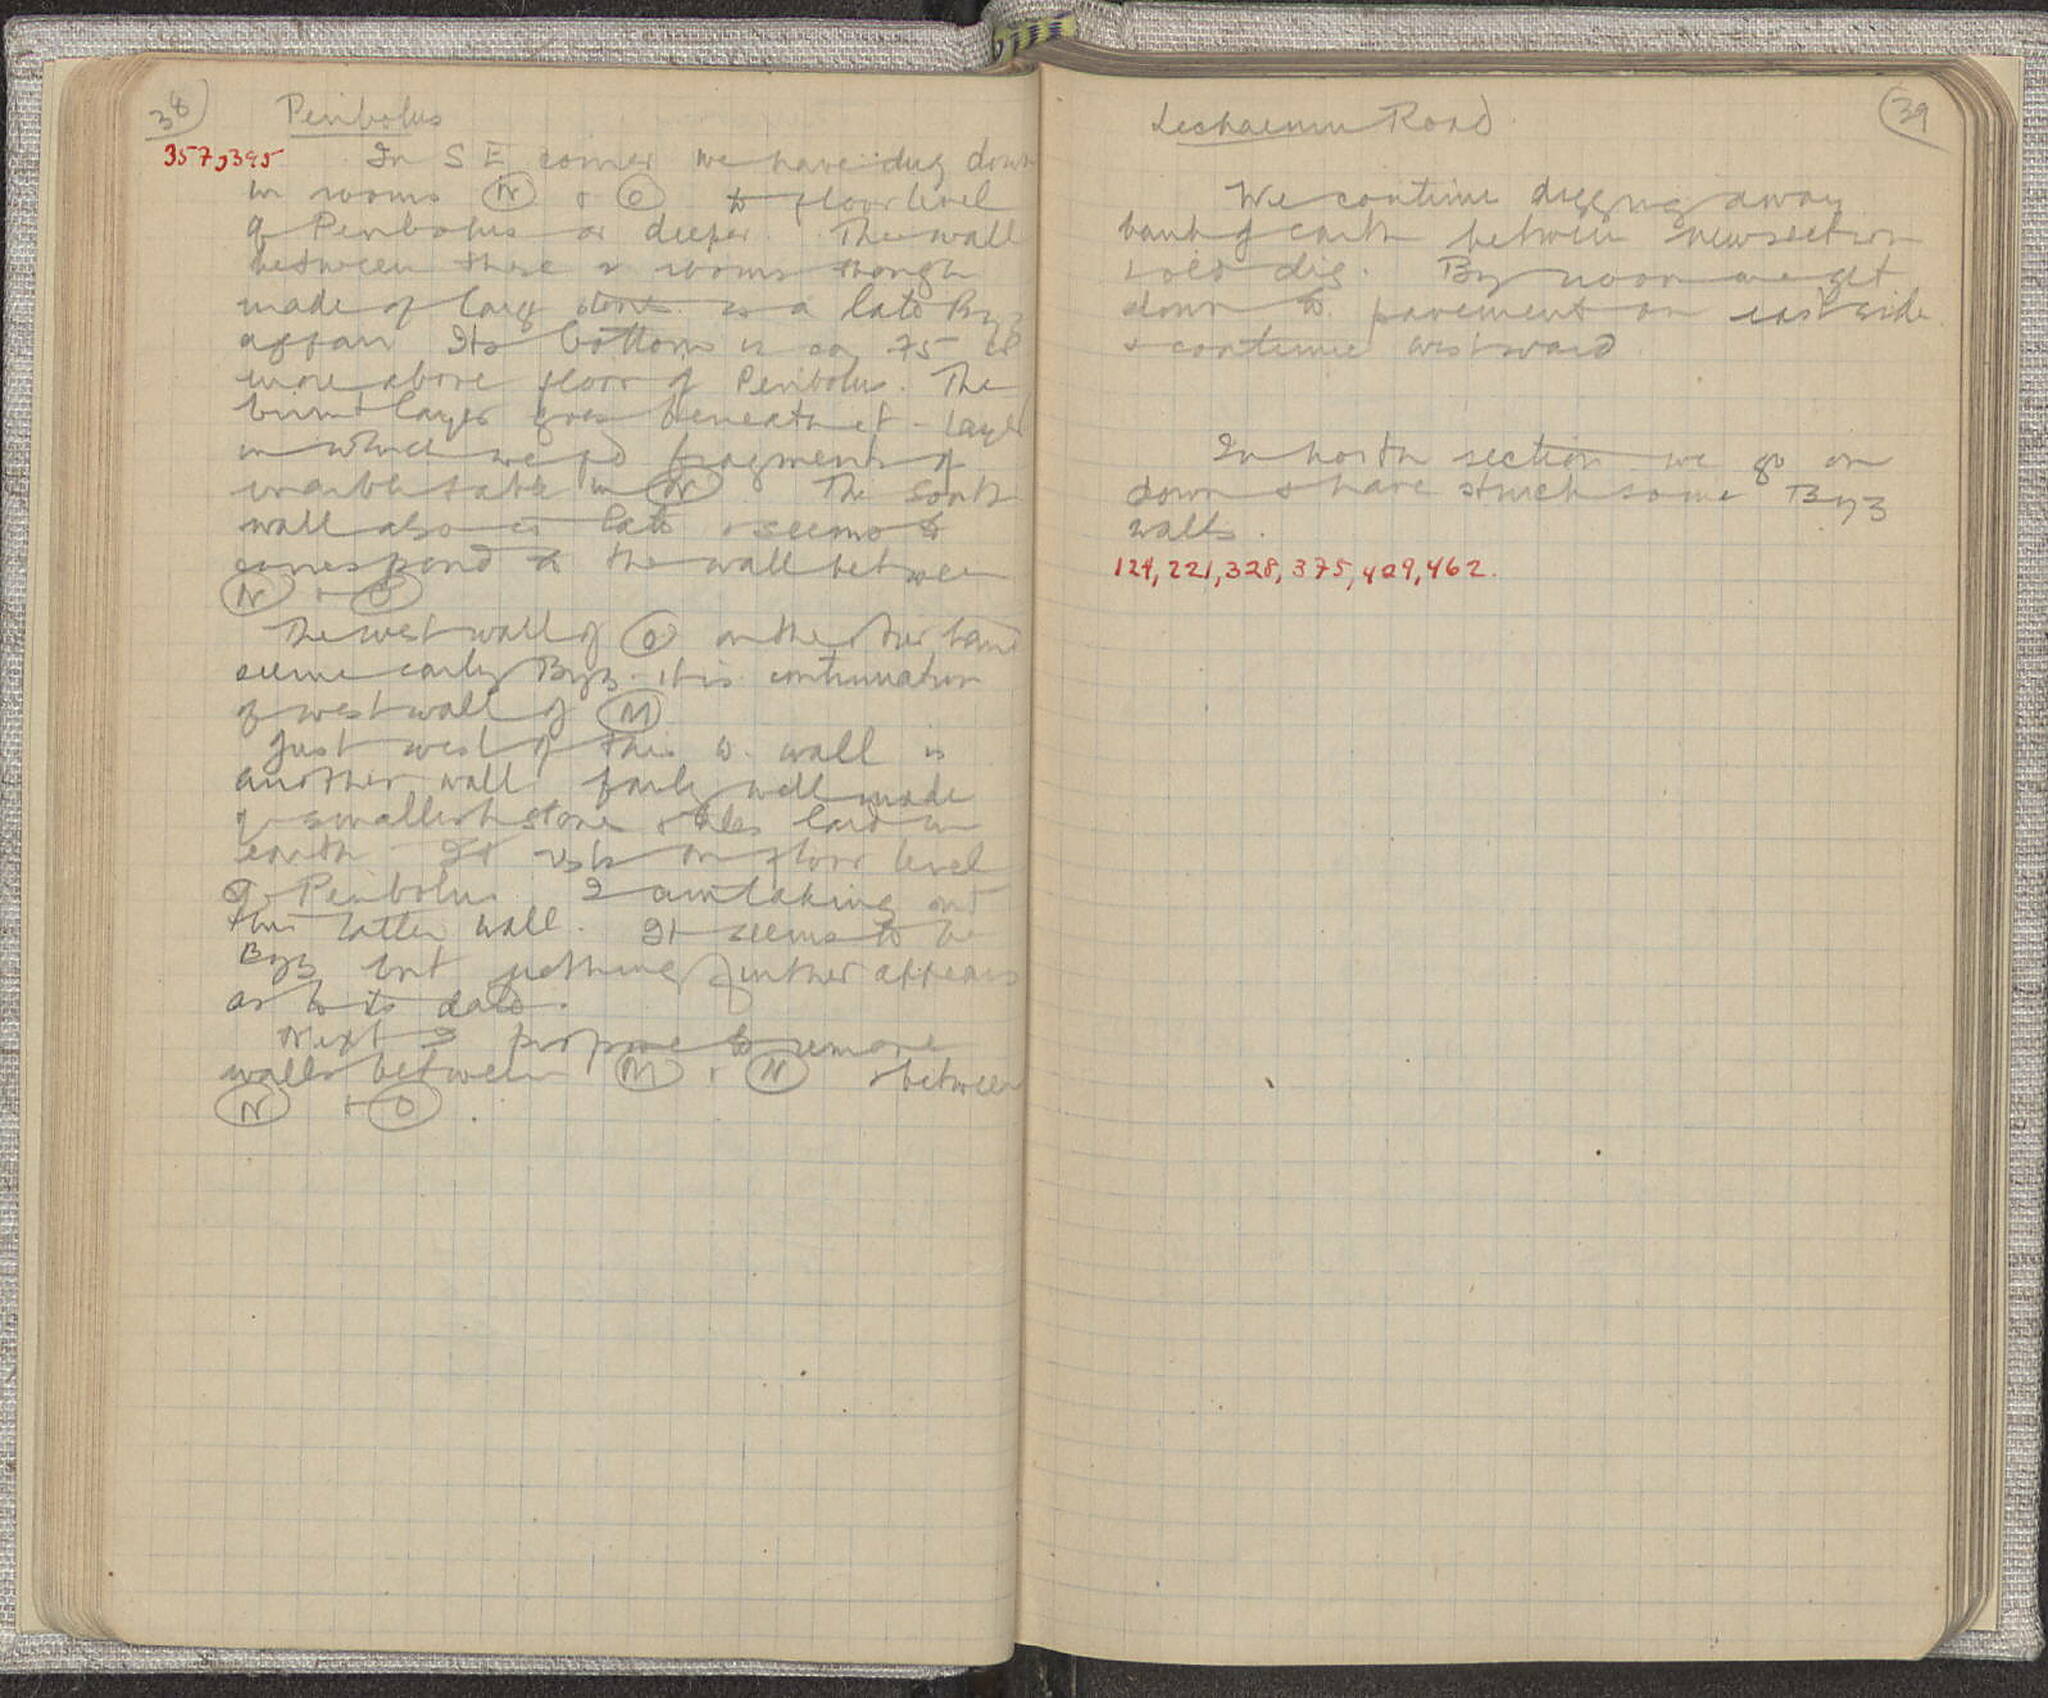 38
Peribolus
357, 395
In S E corner we have dug down
in rooms N + O to floor level
of Peribolus or deeper. The wall
between these 2 rooms though
made of large stones is a late Byz
affair Its bottom is say 75 or
more above floor of Peribolus. The
burnt layer goes beneath it - layer
in which we fd fragments of
marble table in N. The South
wall also is late + seems to
correspond to the wall between
N + O
The west wall of O on the other hand
seems early Byz. it is continuation
of west wall of M
Just west of this w. wall is
another wall fairly well made
of smallish stones + tiles laid in
earth It rests on floor level
of Peribolus I am taking out
this latter wall. It seems to be
Byz but nothing further appears
as to its date.
Next I propose to remove
walls between M + N + between
N + O.
39
Lechaeum Road
We continue digging away
bank of earth between new section
+ old dig. By noon we get
down to pavement on east side
+ continue westward
In north section we go on
down + have struck some Byz
walls.
124, 221, 328, 375, 429, 462.